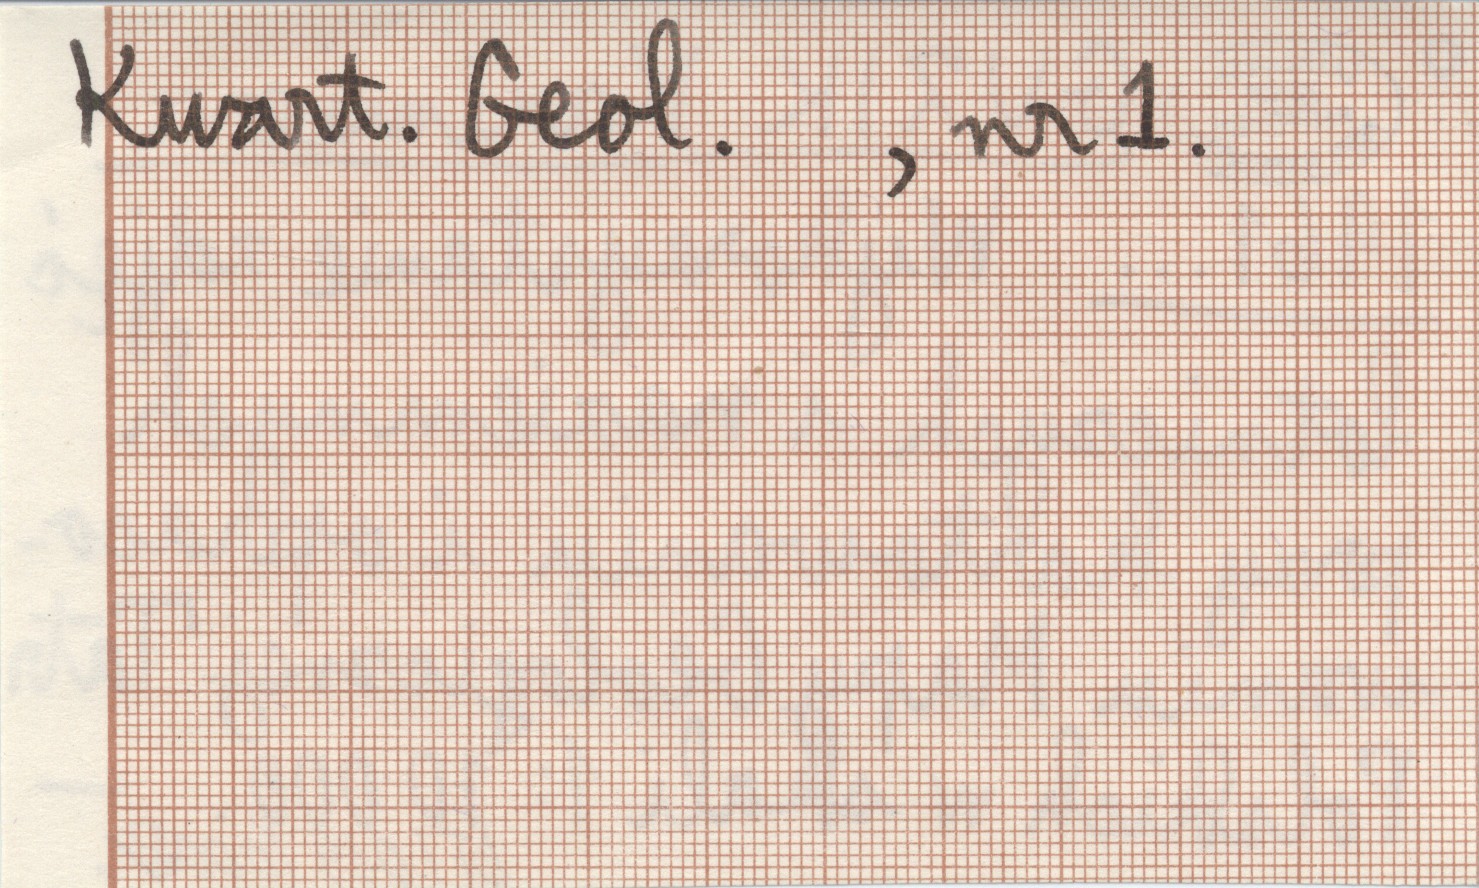 Kwart. Geol. , nr 1.